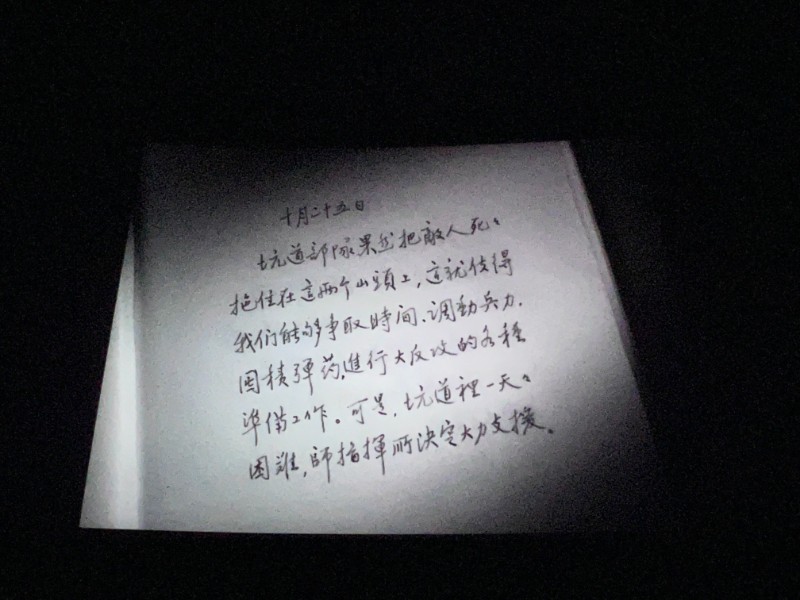 十月二十五日
坑道部隊果然把敵人死々
拖住在這兩个山頭上，這就使得
我们能够争取時间、调動兵力、
囤積弹药，進行大反攻的各種
準備工作。可是，坑道裡一天々
困難，師指揮所決定大力支援。